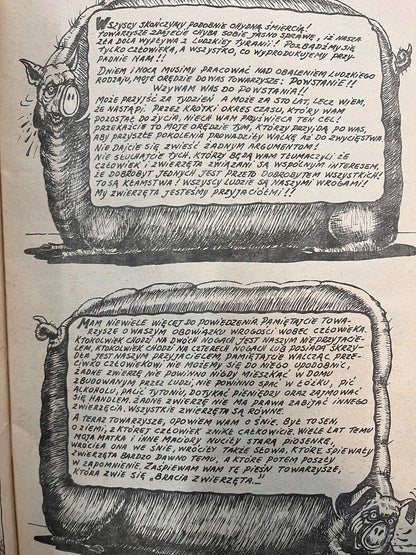 WSZYSCY SKOŃCZYMY PODOBNIE OHYDNĄ ŚMIERCIĄ!
TOWARZYSZE ZDAJECIE CHYBA SOBIE JASNO SPRAWĘ, IŻ NASZA
ZŁA DOLA WYPŁYWA Z LUDZKIEJ TYRANII! POZBĄDŹMY SIĘ
TYLKO CZŁOWIEKA, A WSZYSTKO, CO WYPRODUKUJEMY PRZY-
PADNIE NAM!!
DNIEM I NOCĄ MUSIMY PRACOWAĆ NAD OBALENIEM LUDZKIEGO
RODZAJU, MOJE ORĘDZIE DO WAS TOWARZYSZE: POWSTANIE!!
WZYWAM WAS DO POWSTANIA!!
MOŻE PRZYJŚĆ ZA TYDZIEŃ A MOŻE ZA STO LAT, LECZ WIEM,
ŻE NASTĄPI. PRZEZ KRÓTKI OKRES CZASU, KTÓRY WAM
POZOSTAŁ DO ŻYCIA, NIECH WAM PRZYŚWIECA TEN CEL!
PRZEKAŻCIE TO MOJE ORĘDZIE TYM, KTÓRZY PRZYJDĄ PO WAS,
ABY PRZYSZŁE POKOLENIA PROWADZIŁY WALKĘ AŻ DO ZWYCIĘSTWA
NIE DAJCIE SIĘ ZWIEŚĆ ŻADNYM ARGUMENTOM!
NIE SŁUCHAJCIE TYCH, KTÓRZY BĘDĄ WAM TŁUMACZYLI ŻE
CZŁOWIEK I ZWIERZĘTA ZWIĄZANI SĄ WSPÓLNYM INTERESEM,
ŻE DOBROBYT JEDNYCH JEST PRZETO DOBROBYTEM WSZYSTKICH!
TO SĄ KŁAMSTWA! WSZYSCY LUDZIE SĄ NASZYMI WROGAMI!
MY ZWIERZĘTA JESTEŚMY PRZYJACIÓŁMI!!
MAM NIEWIELE WIĘCEJ DO POWIEDZENIA. PAMIĘTAJCIE TOWA-
RZYSZE O WASZYM OBOWIĄZKU WROGOŚCI WOBEC CZŁOWIEKA.
KTOKOLWIEK CHODZI NA DWÓCH NOGACH JEST NASZYM NIEPRZYJACIE-
LEM, KTOKOLWIEK CHODZI NA CZTERECH NOGACH LUB POSIADA SKRZY-
DŁA JEST NASZYM PRZYJACIELEM, PAMIĘTAJCIE WALCZĄC PRZE-
CIWKO CZŁOWIEKOWI NIE MOŻEMY SIĘ DO NIEGO UPODOBNIĆ,
ŻADNE ZWIERZĘ NIE POWINNO NIGDY MIESZKAĆ W DOMU
ZBUDOWANYM PRZEZ LUDZI, NIE POWINNO SPAĆ W ŁÓŻKU, PIĆ
ALKOHOLU, PALIĆ TYTONIU, DOTYKAĆ PIENIĘDZY ORAZ ZAJMOWAĆ
SIĘ HANDLEM. ŻADNE ZWIERZĘ NIE MA PRAWA ZABIJAĆ INNEGO
ZWIERZĘCIA. WSZYSTKIE ZWIERZĘTA SĄ RÓWNE.
A TERAZ TOWARZYSZE, OPOWIEM WAM O ŚNIE. BYŁ TO SEN,
O ZIEMI, Z KTÓREJ CZŁOWIEK ZNIKŁ CAŁKOWICIE. WIELE LAT TEMU
MOJA MATKA I INNE MACIORY NUCIŁY STARĄ PIOSENKĘ,
WRÓCIŁA ONA WE ŚNIE, WRÓCIŁY TAKŻE SŁOWA, KTÓRE ŚPIEWAŁY
ZWIERZĘTA BARDZO DAWNO TEMU, A KTÓRE POTEM POSZŁY
W ZAPOMNIENIE. ZAŚPIEWAM WAM TĘ PIEŚŃ TOWARZYSZE,
KTÓRA ZWIE SIĘ „BRACIA ZWIERZĘTA..."